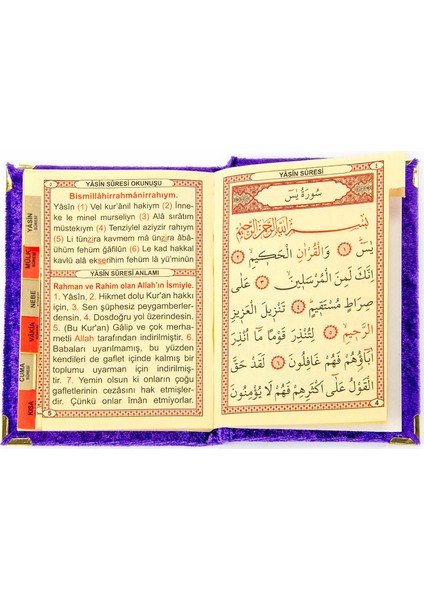 YÂSİN SÛRESİ OKUNUŞU
Bismillâhirrahmânirrahıym.
Yâsîn (1) Vel kur'ânil hakiym (2) İnne-
ke le minel murseliyn (3) Alâ sırâtım
müstekıym (4) Tenziylel aziyzir rahıym
(5) Li tünzira kavmem mâ ünzira âbâ-
ühüm fehüm gâfilûn (6) Le kad hakkal
kavlü alâ ekserihim fehüm lâ yü'minûn
YÂSİN SÛRESİ ANLAMI
Rahman ve Rahim olan Allah'ın İsmiyle.
1. Yâsîn, 2. Hikmet dolu Kur'an hakkı
için, 3. Sen şüphesiz peygamberler-
densin. 4. Dosdoğru yol üzerindesin.
5. (Bu Kur'an) Gâlip ve çok merha-
metli Allah tarafından indirilmiştir. 6.
Babaları uyarılmamış, bu yüzden
kendileri de gaflet içinde kalmış bir
toplumu uyarman için indirilmiş-
tir. 7. Yemin olsun ki onların çoğu
gafletlerinin cezasını hak etmişler-
dir. Çünkü onlar îmân etmiyorlar.
5
YÂSİN SÛRESİ
MÜLK SÛRESİ
NEBE
VAKIA
CUMA SÛRESİ
KISA
YÂSİN SÛRESİ
٤
سُورَةُ يٰسٓ
بِسْمِ اللّٰهِ الرَّحْمٰنِ الرَّحِيمِ
يٰسٓ ﴿١﴾ وَالْقُرْاٰنِ الْحَكِيمِ ﴿٢﴾
اِنَّكَ لَمِنَ الْمُرْسَلِينَ ﴿٣﴾ عَلٰى
صِرَاطٍ مُسْتَقِيمٍ ﴿٤﴾ تَنْزِيلَ الْعَزِيزِ
الرَّحِيمِ ﴿٥﴾ لِتُنْذِرَ قَوْمًا مَٓا اُنْذِرَ
اٰبَٓاؤُهُمْ فَهُمْ غَافِلُونَ ﴿٦﴾ لَقَدْ حَقَّ
الْقَوْلُ عَلٰٓى اَكْثَرِهِمْ فَهُمْ لَا يُؤْمِنُونَ
4